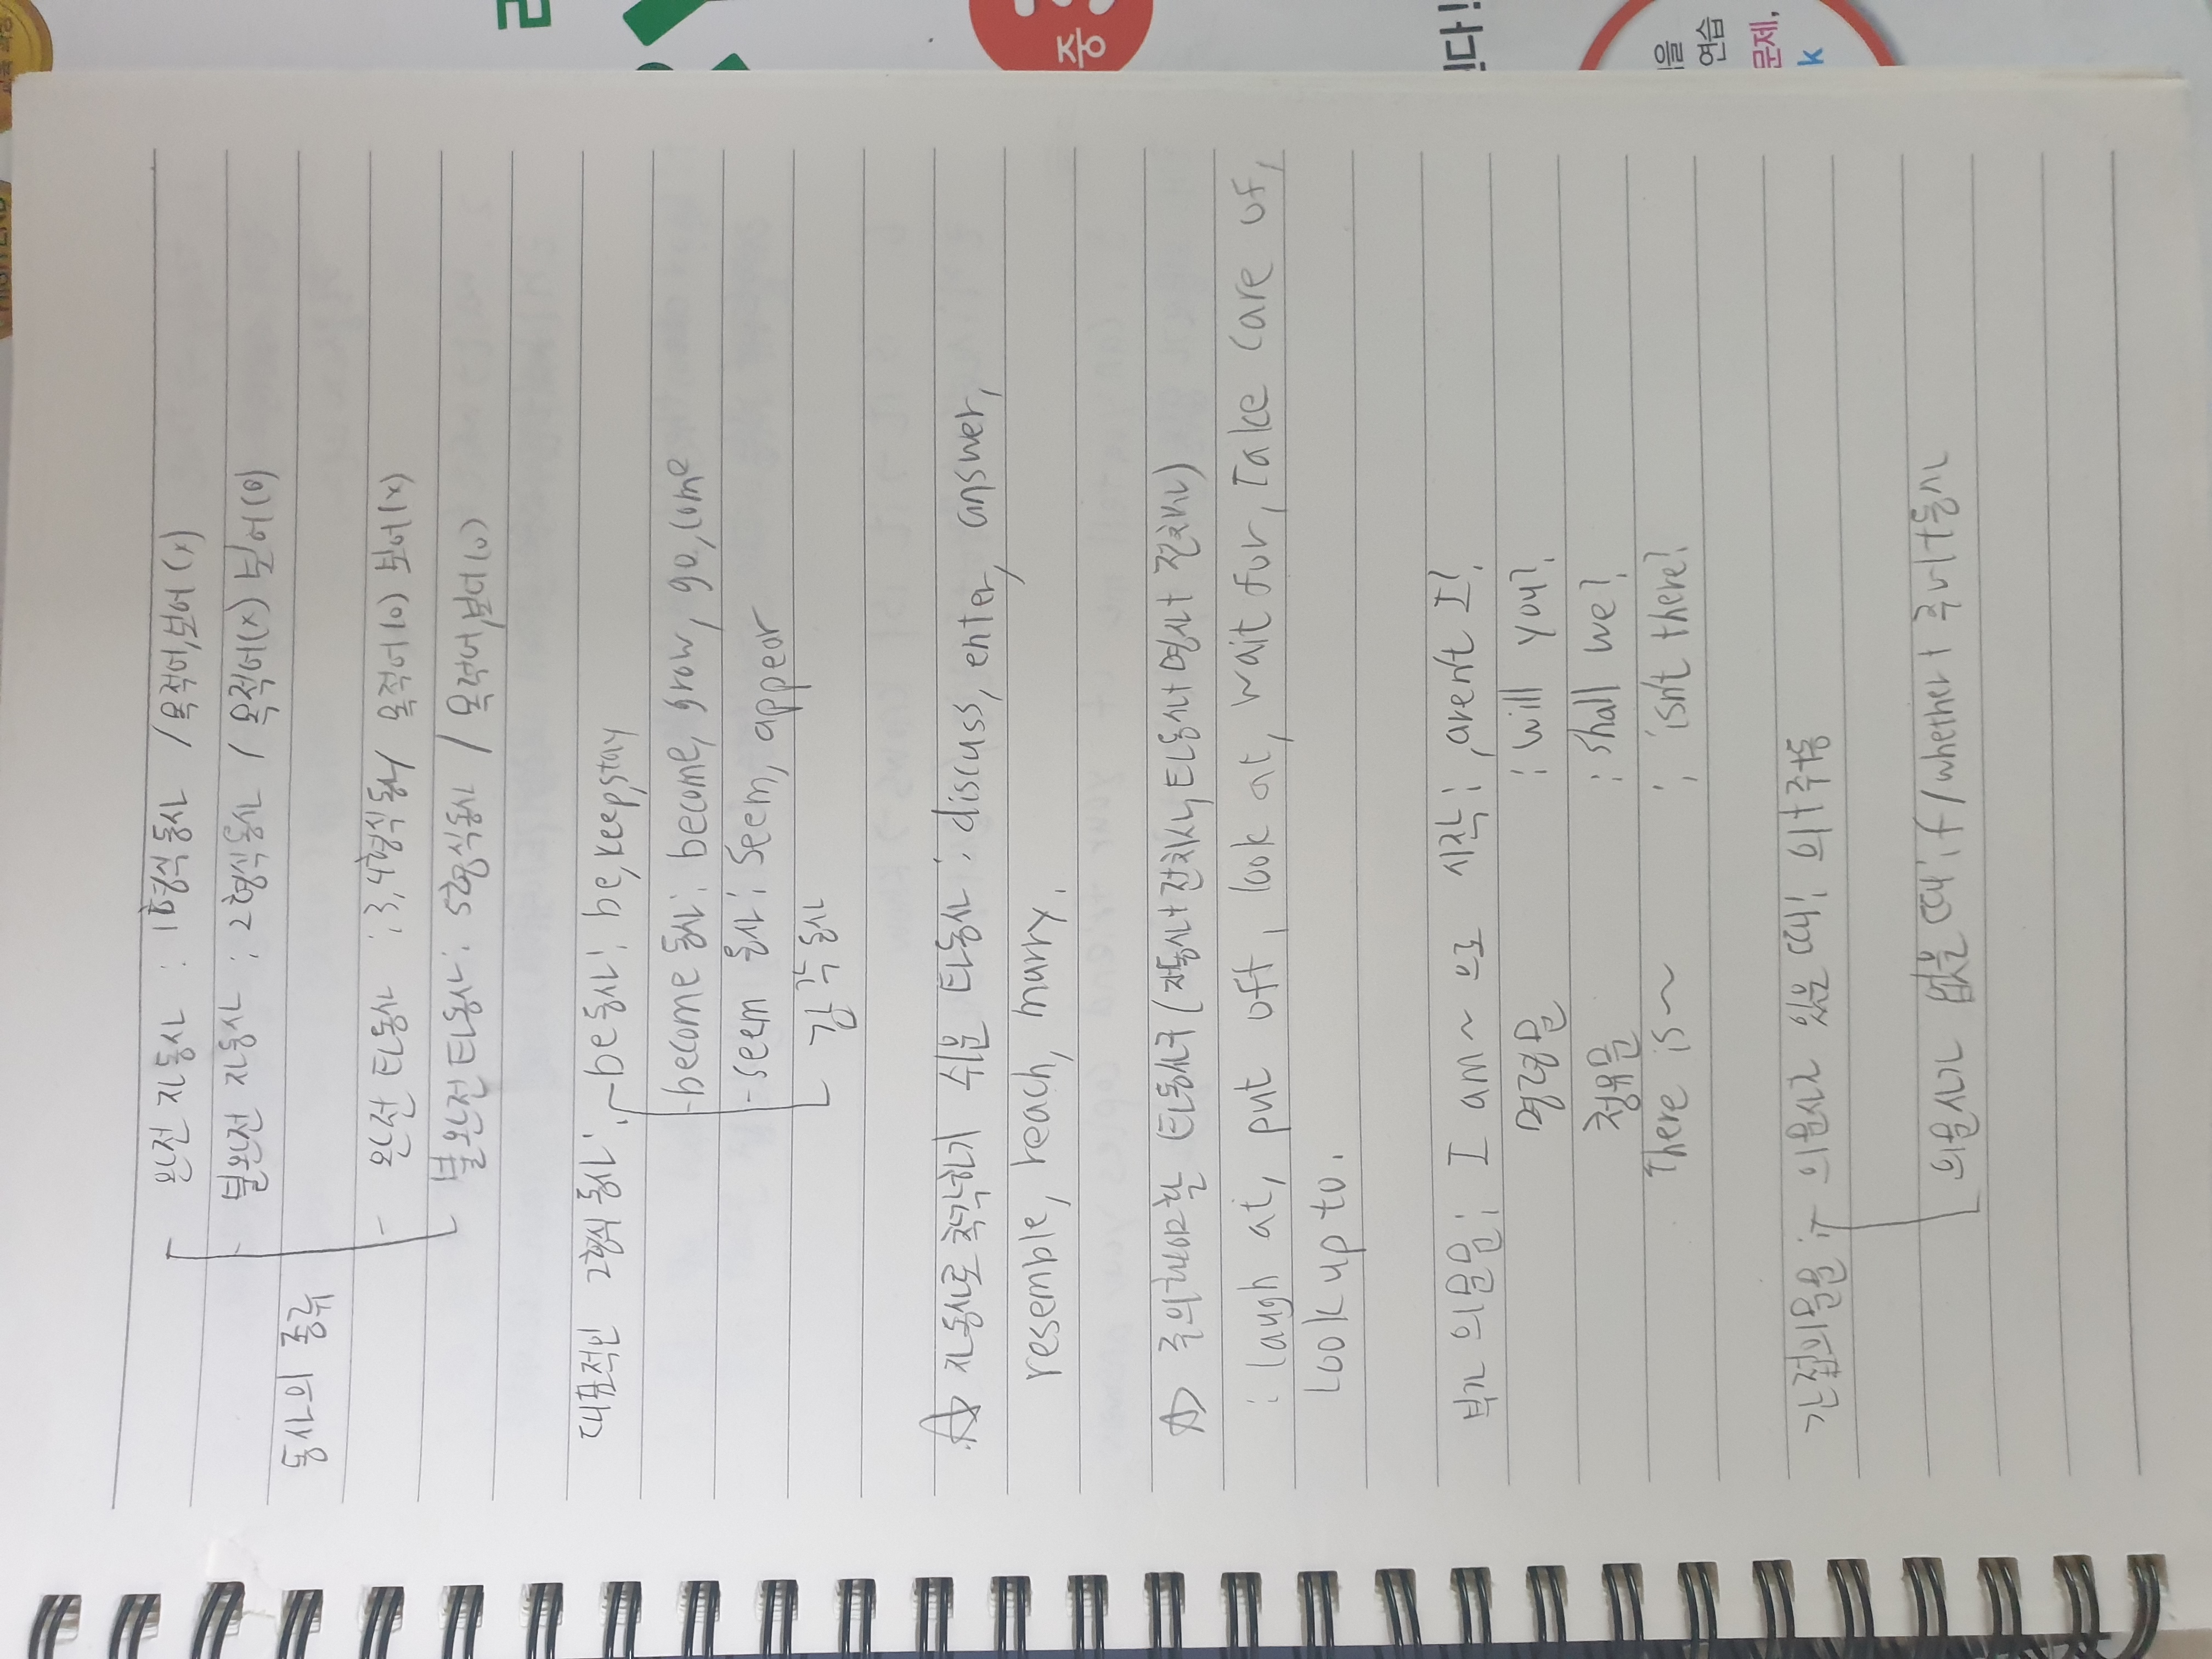 완전 자동사 : 1형식 동사 / 목적어, 보어 (x)
불완전 자동사 : 2형식 동사 / 목적어(x) 보어(o)
동사의 종류
완전 타동사 : 3, 4형식 동사 / 목적어(o) 보어(x)
불완전 타동사 : 5형식 동사 / 목적어, 보어(o)
대표적인 2형식 동사 : - be동사 : be, keep, stay
- become 동사 : become, grow, go, come
- seem 동사 : seem, appear
감각동사
☆ 자동사로 착각하기 쉬운 타동사 : discuss, enter, answer,
resemble, reach, marry.
☆ 주의해야할 타동사구 (자동사+전치사, 타동사+명사+전치사)
: laugh at, put off, look at, wait for, Take care of,
Look up to.
부가 의문문 : I am ~ 으로 시작 : , aren't I?
명령문 : will you?
청유문 : shall we?
There is ~ : , isn't there?
간접의문문 : 의문사가 있을 때 : 의+주+동
의문사가 없을 때 : if / whether + 주어+동사
리
중
된다!
을
연습
문제,
k